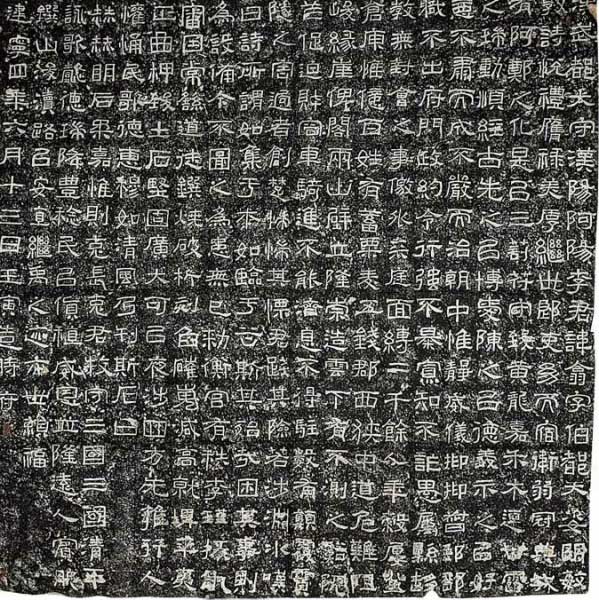 武都太守漢陽阿陽李君諱翕字伯都天姿明敏
敦詩悅禮膺祿美厚繼世郎吏幼而宿衛弱冠典城
有阿鄭之化是以三剖符守致黃龍嘉禾木連甘露
之瑞動順經古先之以博愛陳之以德義示之以好
惡不肅而成不嚴而治朝中惟靜威儀抑抑督郵部
職不出府門政約令行強不暴寡知不詐愚屬縣趍
教無對會之事儌外來庭面縛二千餘人年穀屢登
倉庾惟億百姓有蓄粟麥五錢郡西狹中道危難阻
峻緣崖俾閣兩山壁立隆崇造雲下有不測之谿阨
芒促迫財容車騎進不能濟息不得駐數有顛覆霣
隧之害過者創楚惴惴其慄君踐其險若涉淵冰嘆
曰詩所謂如集于木如臨于谷斯其殆哉困其事則
為設備今不圖之為患無已敕衡官有秩李瑾掾仇
審因常繇道徒鐉燒破析刻臽磪嵬減高就埤平夷
正曲柙致土石堅固廣大可以夜涉四方无雍行人
懽悀民歌德惠穆如清風乃刊斯石曰
赫赫明后柔嘉惟則克長克君牧守三國三國清平
詠歌懿德瑞降豐稔民以貨稙威恩並隆遠人賓服
鐉山浚瀆路以安直繼禹之迹亦世賴福
建寧四年六月十三日壬寅造時府